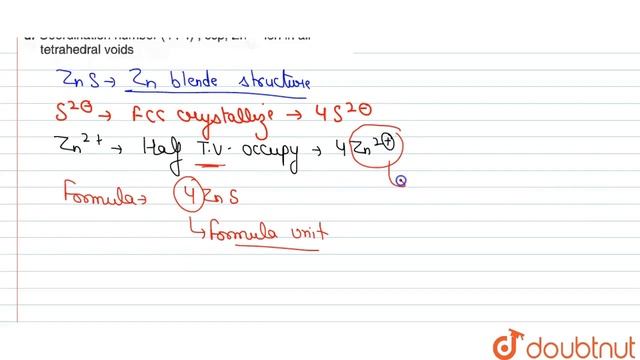 d. Coordination number (4:4); ccp; Zn²⁺ ion in all
tetrahedral voids
ZnS → Zn blende structure
S²⊖ → FCC crystallize → 4S²⊖
Zn²⁺ → Half T.V. occupy → 4Zn²⊕
Formula → 4ZnS
↳ Formula unit
doubtnut